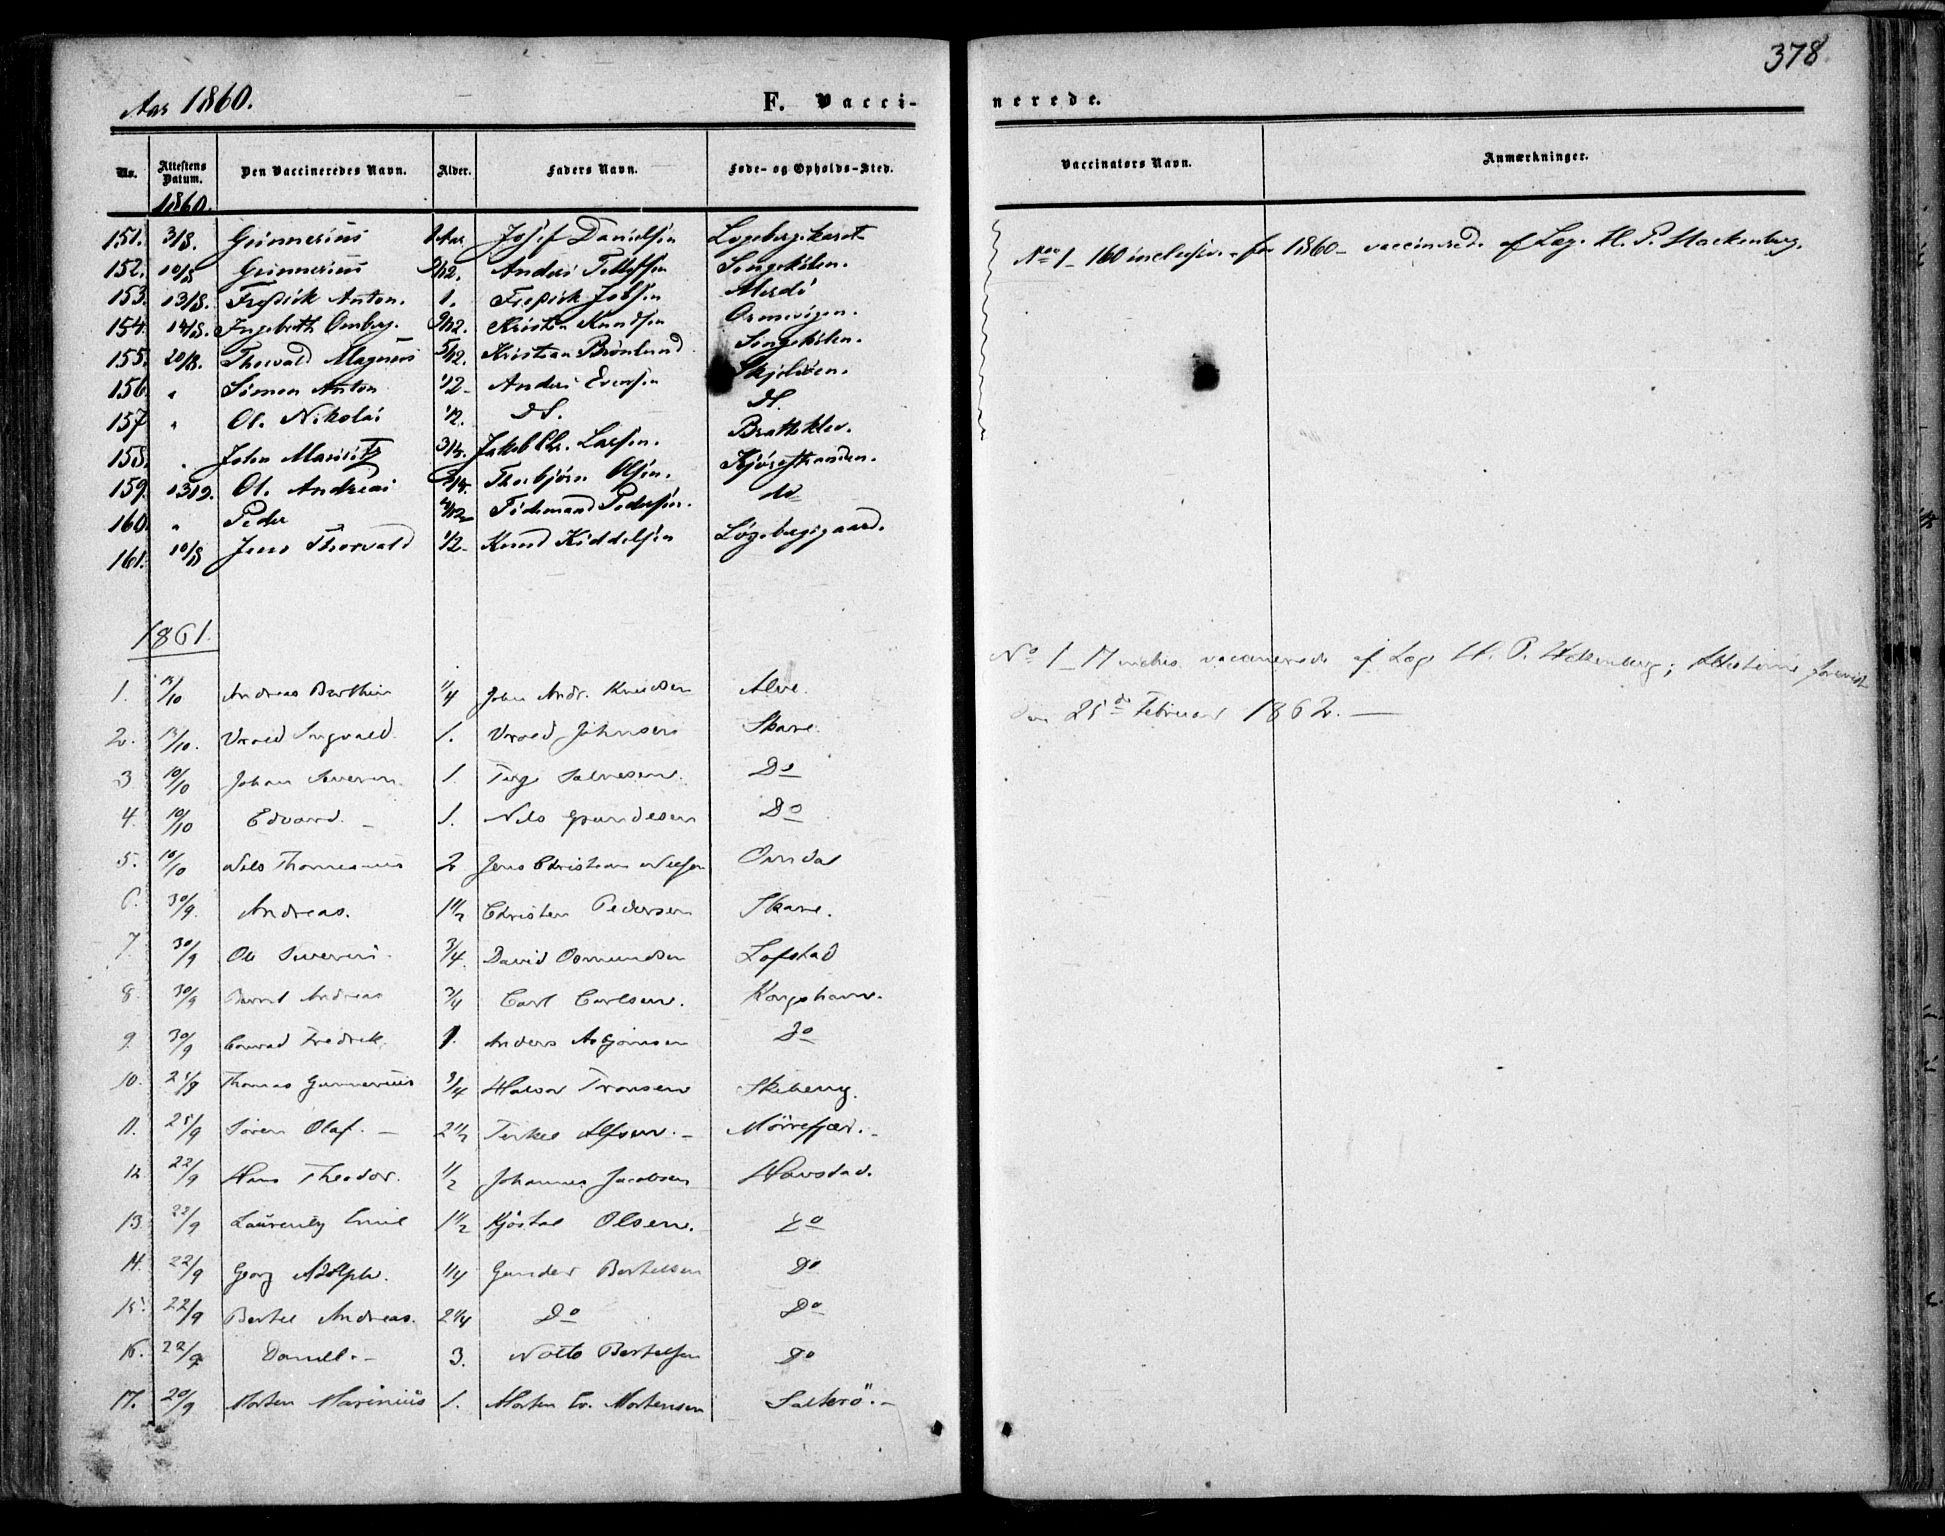 378
Aar 1860. F. Vacci-
nerede.
Nr. Attestens Datum. Den Vaccineredes Navn. Alder. Faders Navn. Føde- og Opholds-Sted. Vaccinators Navn. Anmærkninger.
1860.
151. 3/8. Gunnerius 1 Aar Josef Danielsen
152. 10/8 Gunnerius Anders Tellefsen Songekilen.
153. 13/8. Fredrik Anton. 1. Fredrik Jobsen Merdö
154. 14/8. Ingebreth Omberg. 9/12. Kristen Knudsen Ormevigen.
155. 20/8. Thorvald Magnus 5/12. Kristian Brönlund Songekilen.
156. " Simon Anton 1/2 Anders Evensen Skjelöen.
157 " Ol. Nikolai 1/2. do. do.
158. " John Mauritz 3/4. Jakob Chr. Larsen. Bratteklev.
159. 13/9. Ol. Andreas Thorbjörn Olsen. Kjörestranden.
160. " Peder Tidemand Pedersen. do
161. 10/8 Jens Thorvald 1/2 Knud Kiddelsen Løgebergsgaard.
No 1 - 160 inclusive for 1860 vaccinerede af Læge H. P. Hackenberg.
1861.
1. 14/10 Andreas Berthin 1/4 John Andr. Knudsen Alve.
2. 14/10. Vrold Ingvald. 1. Vrold Johnsen Skare.
3 10/10 Johan Severin. 1. Terge Salvesen. Do
4. 10/10 Edvard. 1. Nils Gundesen Do
5. 10/10 Nils Thomesius 2 Jens Christian Nielsen
6. 30/9. Andreas. 1 1/2 Christen Pedersen Skare.
7 30/9 Ole Severin. 3/4. David Osmundsen Lofstad
8. 30/9 Bernt Andreas 3/4 Carl Carlsen. Kongshavn.
9. 30/9 Conrad Fredrik. 1. Anders Asbjørnsen Do
10. 25/9 Thomas Gunnerius 3/4 Halvor Tronsen Skiberg.
11. 25/9 Sören Olaf. 2 1/2 Terkel Alfsen. Mörrefjær.
12 22/9 Hans Theodor. 1/2 Johannes Jacobsen Havstad.
13 22/9 Laurentz Emil 1 1/2 Kjöstol Olsen. Do
14. 22/9 Georg Adolph. 1/4 Gunder Bertelsen Do
15. 22/9 Bertel Andreas. 2 1/4 Do Do
16. 22/9 Daniel. 3. Notto Bertelsen Do
17. 20/9 Morten Marinius 1. Morten Ev. Mortensen Salterö.
No 1 - 17 inclus. vaccinerede af Læge H. P. Hackenberg; Attesterne forevist
den 25de Februar 1862.